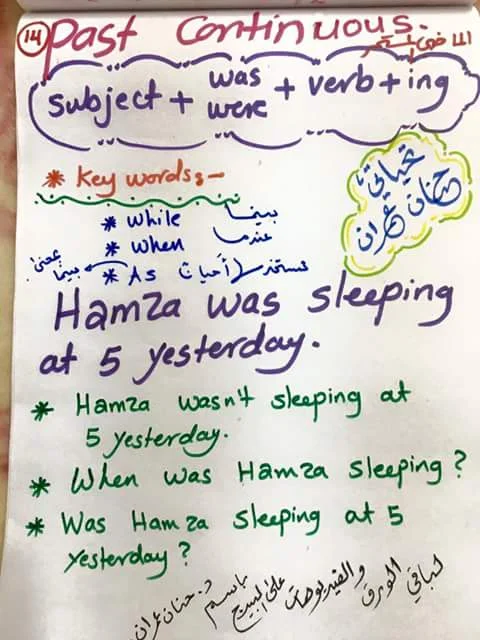 14 Past Continuous.
الماضي المستمر
subject + was were + verb + ing
* Key words:-
تحياتي
حنان عمران
* while بينما
* when عندما
* As تستخدم أحيانا بمعنى بينما
Hamza was sleeping
at 5 yesterday.
* Hamza wasn't sleeping at
5 yesterday.
* When was Hamza sleeping?
* Was Hamza sleeping at 5
yesterday?
لباقي الورق والفيديوهات على البيدج باسم د. حنان عمران